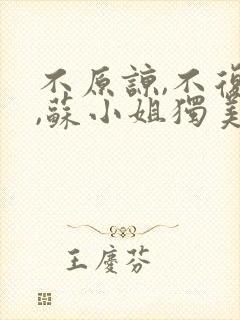 不原諒,不復
,蘇小姐獨美
王慶芬